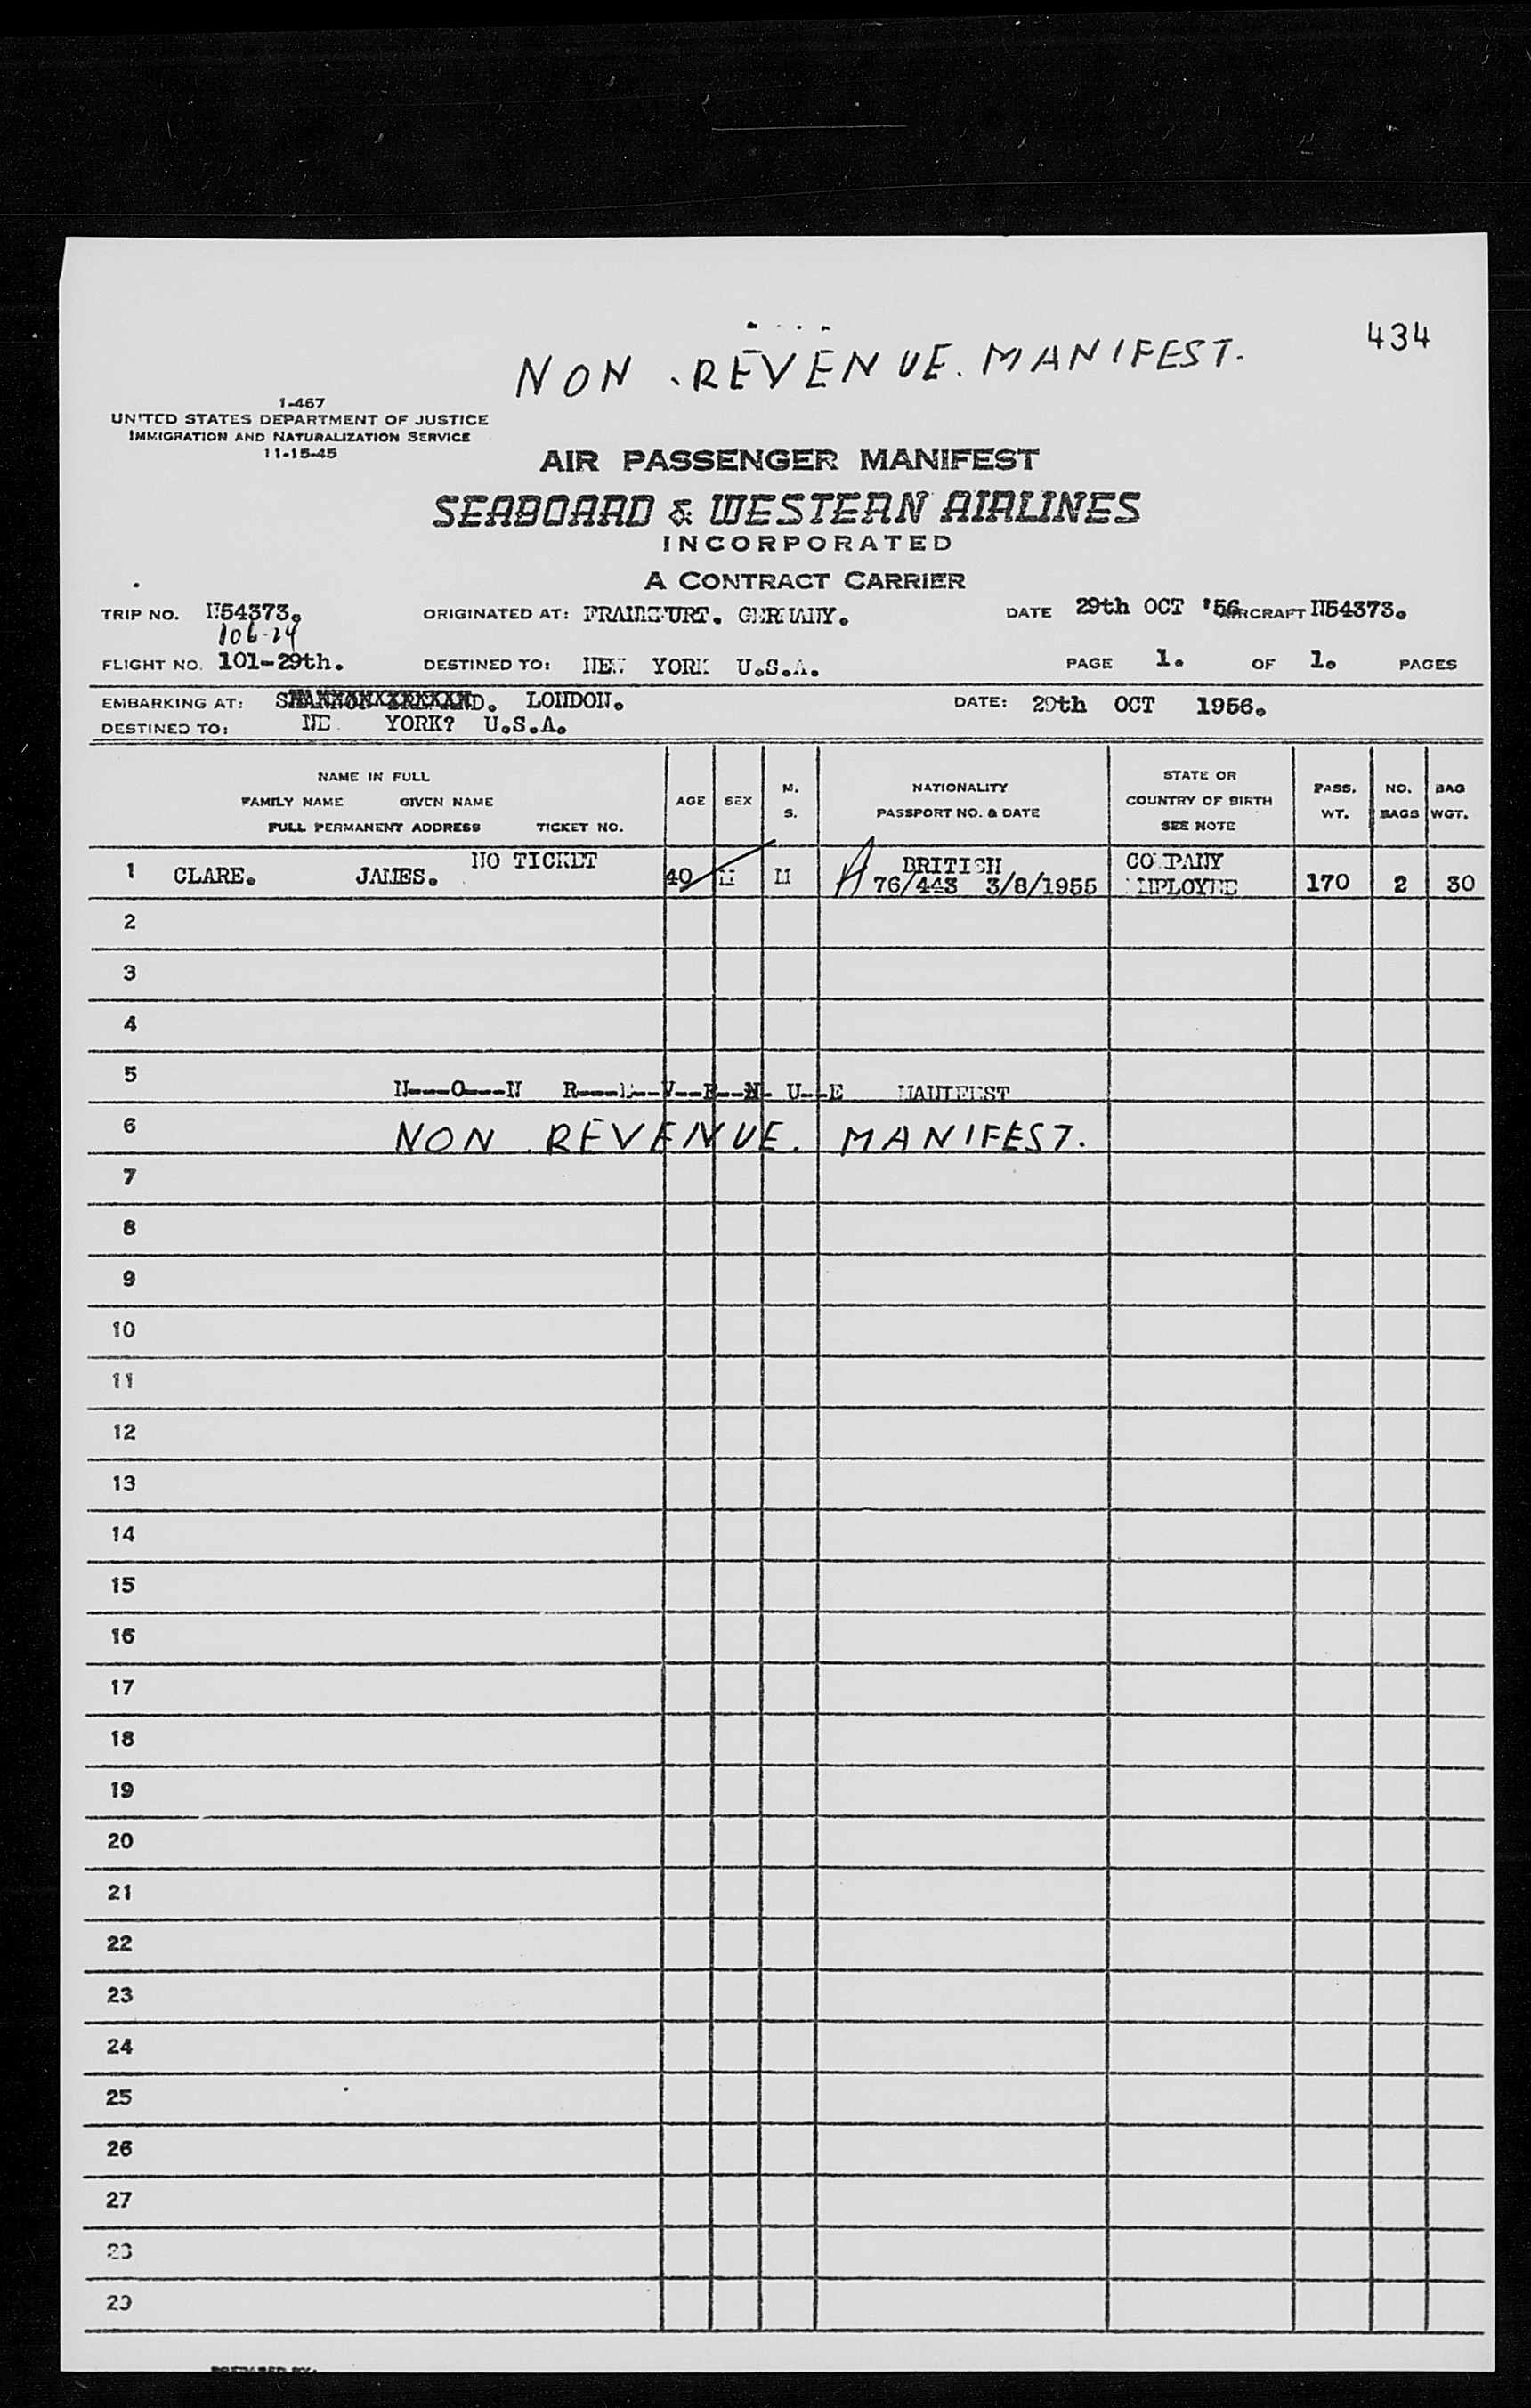 434
NON REVENUE. MANIFEST.
1-467
UNITED STATES DEPARTMENT OF JUSTICE
IMMIGRATION AND NATURALIZATION SERVICE
11-15-45
AIR PASSENGER MANIFEST
SEABOARD & WESTERN AIRLINES
INCORPORATED
A CONTRACT CARRIER
TRIP NO. N54373. ORIGINATED AT: FRANKFURT. GERMANY. DATE 29th OCT '56 AIRCRAFT N54373.
106-24
FLIGHT NO. 101-29th. DESTINED TO: NEW YORK U.S.A. PAGE 1. OF 1. PAGES
EMBARKING AT: LONDON. DATE: 29th OCT 1956.
DESTINED TO: NE YORK? U.S.A.
NAME IN FULL
FAMILY NAME GIVEN NAME
FULL PERMANENT ADDRESS TICKET NO.
AGE
SEX
M.
S.
NATIONALITY
PASSPORT NO. & DATE
STATE OR
COUNTRY OF BIRTH
SEE NOTE
PASS.
WT.
NO.
BAGS
BAG
WGT.
NO TICKET BRITISH COMPANY
1 CLARE. JAMES. 40 M M A 76/443 3/8/1955 EMPLOYEE 170 2 30
2
3
4
5
N---O---N R---E--V--E--N- U--E MANIFEST
6 NON REVENUE. MANIFEST.
7
8
9
10
11
12
13
14
15
16
17
18
19
20
21
22
23
24
25
26
27
28
29
PREPARED BY: